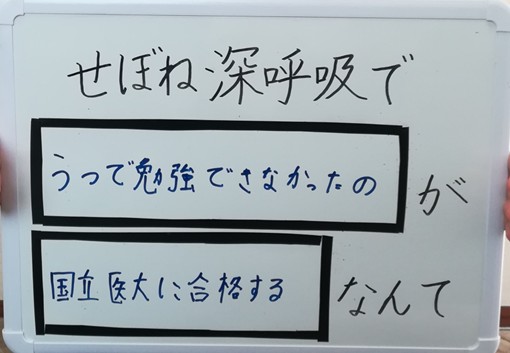 せぼね深呼吸で
うつで勉強できなかったの
が
国立医大に合格する
なんて